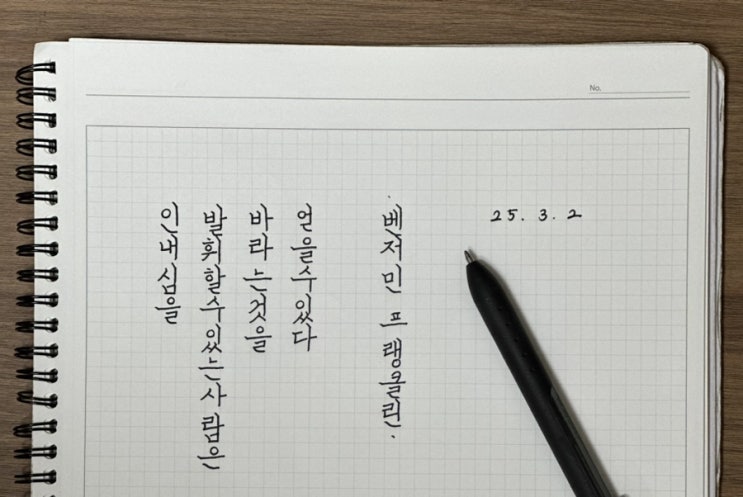 No.
인내심을
발휘할수있는사람은
바라는것을
얻을수있다
· 베저민 프랭클린 ·
25. 3. 2